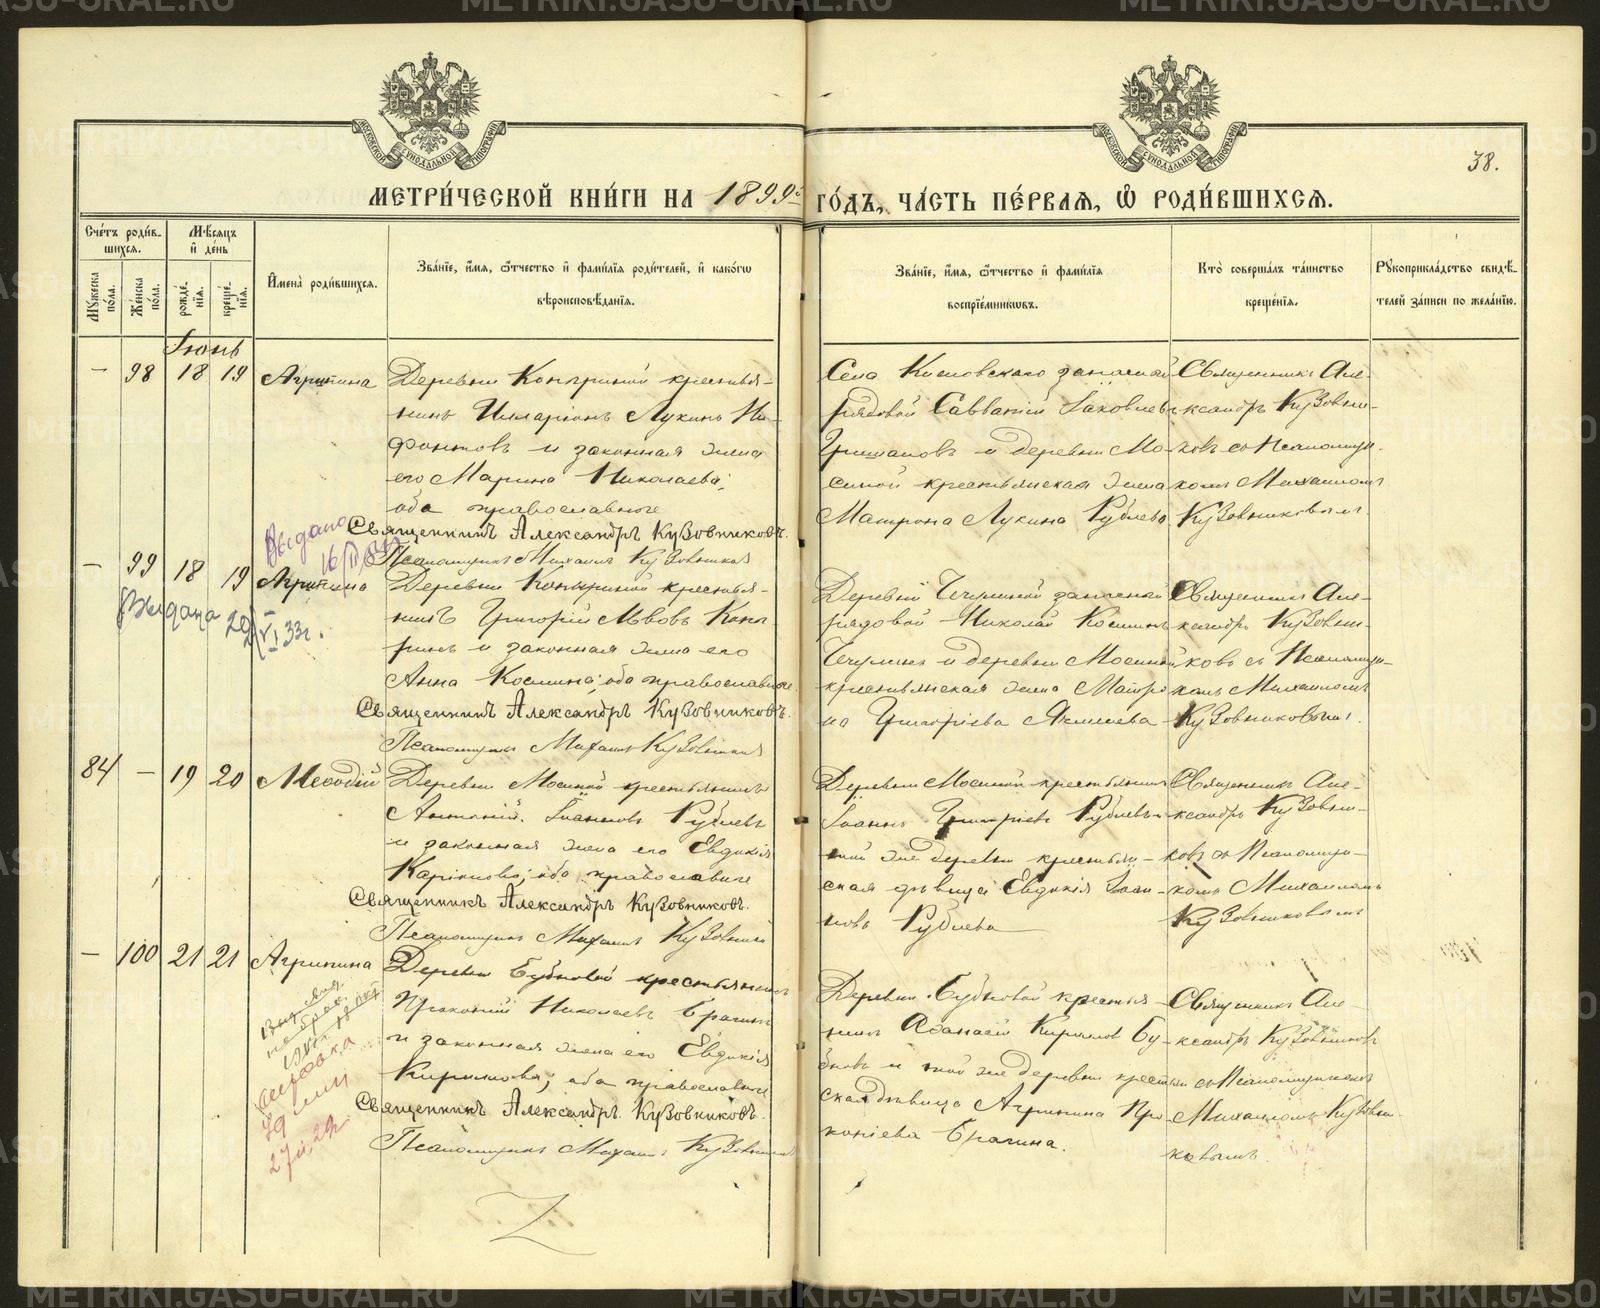 МОСКОВСКОЙ СУНОДАЛЬНОЙ ТИПОГРАФІИ
МОСКОВСКОЙ СУНОДАЛЬНОЙ ТИПОГРАФІИ
38.
МЕТРИ́ЧЕСКОЙ КНИ́ГИ НА 1899й ГО́ДЪ, ЧА́СТЬ ПЕ́РВАЯ, Ѡ РОДИ́ВШИХСЯ.
Сче́тъ роди́в-
шихся.
Мѣ́сяцъ
и҆ де́нь
Мꙋ́жеска по́ла.
Же́нска по́ла.
рожде́-
нїя.
креще́-
нїя.
И҆мена̀ роди́вшихся.
Зва́нїе, и҆́мя, ѻ҆́тчество и҆ фами́лїя роди́телей, и҆ како́гѡ
вѣроисповѣ́данїя.
Зва́нїе, и҆́мя, ѻ҆́тчество и҆ фами́лїя
воспрїе́мникѡвъ.
Кто̀ соверша́лъ та́инство
креще́нїя.
Рꙋкоприкла́дство свидѣ́-
телей за́писи по жела́нїю.
Іюнь
— 98 18 19 Агрипина
Деревни Копыриной крестья-
нинъ Иларіонъ Лукинъ Ни-
фонтовъ и законная жена
его Марина Николаева;
оба православные
Священникъ Александръ Кузовниковъ.
Псаломщикъ Михаилъ Кузовников
Села Кисловскаго запасной
рядовой Савватій Іаковлевъ
Гришановъ и деревни Мо-
синой крестьянская жена
Матрона Лукина Рублева
Священникъ Але-
ксандръ Кузовни-
ковъ съ Псаломщи-
комъ Михаиломъ
Кузовниковымъ
Выдано
— 99 18 19 Агрипина
Выдана 29
33г.
Деревни Копыриной крестья-
нинъ Григорій Львовъ Копы-
ринъ и законная жена его
Анна Космина; оба православные
Священникъ Александръ Кузовниковъ.
Псаломщикъ Михаилъ Кузовников
Деревни Чечулиной запасной
рядовой Николай Косминъ
Чечулинъ и деревни Мосиной
крестьянская жена Матро-
на Григоріева Якимова
Священникъ Але-
ксандръ Кузовни-
ковъ съ Псаломщи-
комъ Михаиломъ
Кузовниковымъ.
84 — 19 20 Меѳодій
Деревни Мосиной крестьянинъ
Антоній Іоанновъ Рублевъ
и законная жена его Евдокія
Карпова; оба православные
Священникъ Александръ Кузовниковъ.
Псаломщикъ Михаилъ Кузовников
Деревни Мосиной крестьянинъ
Іоаннъ Григоріевъ Рублевъ и
той же деревни крестьян-
ская дѣвица Евдокія Іоан-
нова Рублева
Священникъ Але-
ксандръ Кузовни-
ковъ съ Псаломщи-
комъ Михаиломъ
Кузовниковымъ
— 100 21 21 Агрипина
Деревни Бубновой крестьянинъ
Прокопій Николаевъ Брагинъ
и законная жена его Евдокія
Кирилова; оба православные
Священникъ Александръ Кузовниковъ.
Псаломщикъ Михаилъ Кузовников
Деревни Бубновой крестья-
нинъ Аѳанасій Кириловъ Бу-
бновъ и той же деревни крестьян-
ская дѣвица Агрипина Про-
копіева Брагина.
Священникъ Але-
ксандръ Кузовниковъ
съ Псаломщикомъ
Михаиломъ Кузовни-
ковымъ.
METRIKI.GASO-URAL.RU